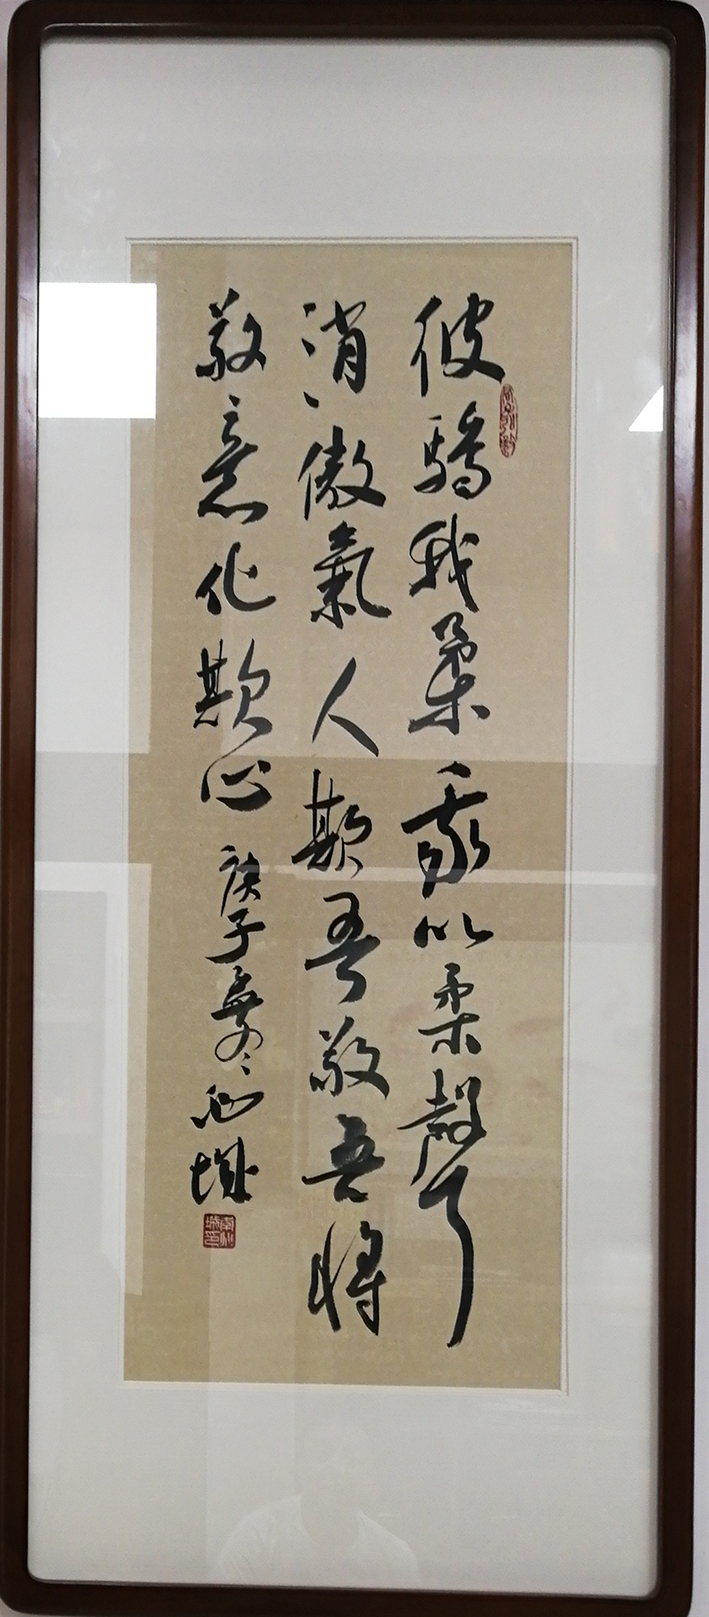 彼驕我柔我以柔聲
消傲氣人欺吾敬吾將
敬意化欺心 庚子